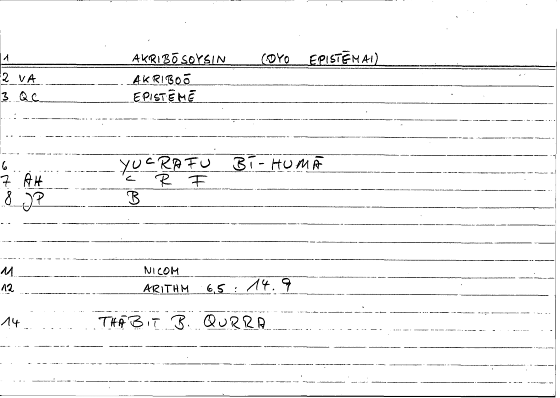 1 AKRIBŌSOYSIN (DYO EPISTĒMAI)
2 VA AKRIBOŌ
3 QC EPISTĒMĒ
6 YUʿRAFU BĪ-HUMĀ
7 AH ʿ R F
8 JP B
11 NICOM
12 ARITHM 6,5 : 14.9
14 THĀBIT B. QURRA